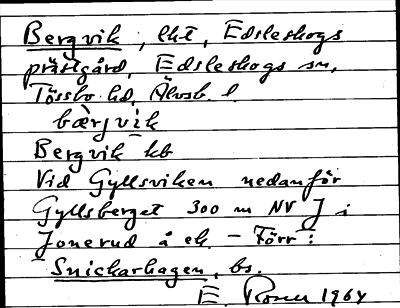 Bergvik, lht, Edsleskogs
prästgård, Edsleskogs sn,
Tössbo hd, Älvsb. l.
bærjvik
Bergvik hb
Vid Gyllsviken nedanför
Gyllsberget 300 m NV J i
Jonerud å ek. - Förr:
Snickarhagen, bs.
E. 1964